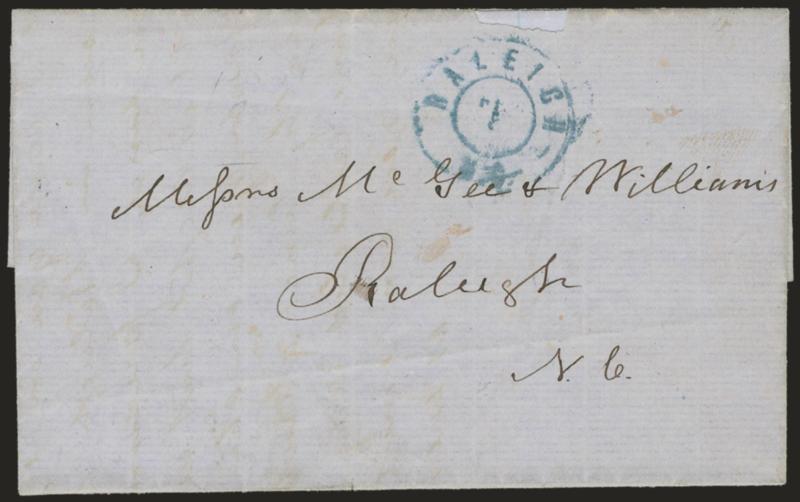 RALEIGH
Messrs Mc Gee & Williams
Raleigh
N. C.